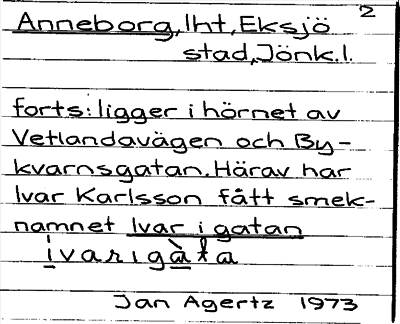 2
Anneborg, lht, Eksjö
stad, Jönk. l.
forts: ligger i hörnet av
Vetlandavägen och By-
kvarnsgatan. Härav har
Ivar Karlsson fått smek-
namnet Ivar i gatan
Jan Agertz 1973